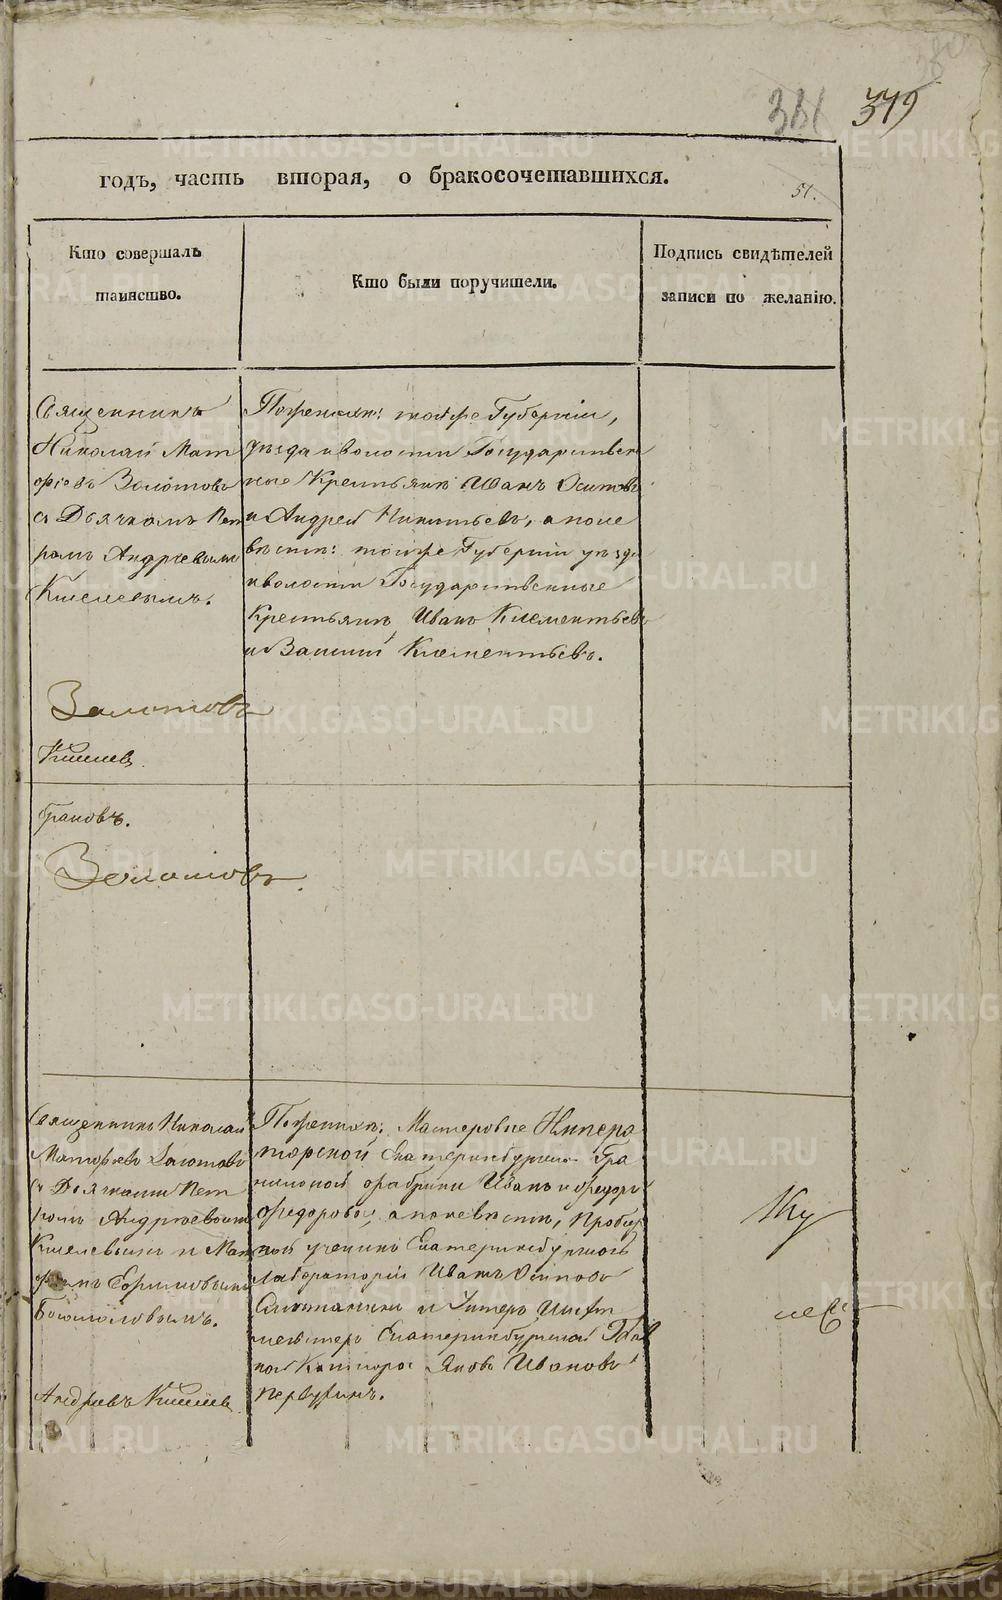 379
годъ, часть вторая, о бракосочетавшихся.
51.
Кто совершалъ
таинство.
Кто были поручители.
Подпись свидѣтелей
записи по желанію.
Священникъ
Николай Мат
фіевъ Золотовъ
съ Дьячкомъ Пет
ромъ Андреевымъ
Киселевымъ.
Золотовъ
Киселев
По женихѣ: тойже Губерніи,
уѣзда и волости Государствен
ные Крестьяне Иванъ Осиповъ
и Андрей Никитьевъ, а по не
вѣстѣ: тойже Губерніи уѣзда
и волости Государственные
Крестьяне Иванъ Клементьевъ
и Василій Клементьевъ.
браковъ.
Золотовъ.
Священникъ Николай
Матфіевъ Золотовъ
съ Дьячками Пет
ромъ Андреевымъ
Киселевымъ и Мат
Ефимовымъ
Богословымъ.
Андреевъ Киселев
По женихѣ: Мастеровые Импера
торской Екатеринбургской Гра
нильной фабрики Иванъ и Федоръ
Федоровы, а по невѣстѣ, Пробир
ной ученикъ Екатеринбургской
Лабораторіи Иванъ Осиповъ
и Унтеръ Шихт
мейстеръ Екатеринбургской Глав
ной Конторы Яковъ Ивановъ
Первушинъ.
METRIKI.GASO-URAL.RU